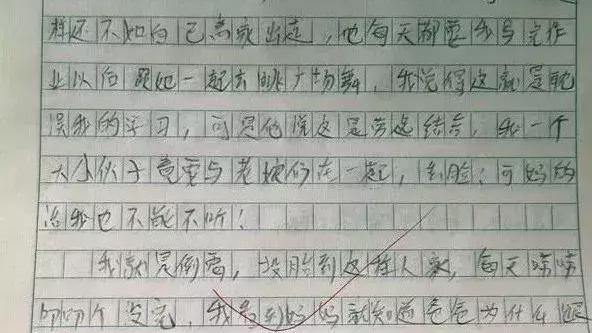 样还不如自己离家出走，他每天都要我写完作
业以后跟她一起去跳广场舞，我觉得这就是耽
误我的学习，可是他说这是劳逸结合，我一个
大小伙子竟要与老娘们在一起，丢脸！可妈的
话我也不能不听！
我就是倒霉，投胎到这种人家，每天吵吵
叨叨个没完，我看到妈妈就知道爸爸为什么